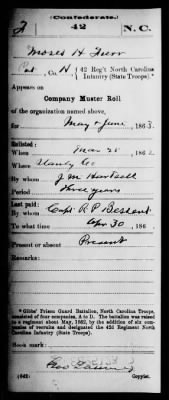 (Confederate.)
F 42 N.C.
Moses H Furr
Pvt, Co. H, 42 Reg't North Carolina
Infantry (State Troops).*
Appears on
Company Muster Roll
of the organization named above,
for May & June, 1863.
Enlisted:
When Mar 25, 1862
Where Stanly Co
By whom J M Hartsell
Period three years
Last paid:
By whom Capt R P Bessent
To what time Apr 30, 186
Present or absent Present
Remarks:
* Gibbs' Prison Guard Battalion, North Carolina Troops,
consisted of four companies, A to D. The battalion was raised
to a regiment about May, 1862, by the addition of six companies
of recruits and designated the 42d Regiment North
Carolina Infantry (State Troops).
Book mark:
(642) Copyist.